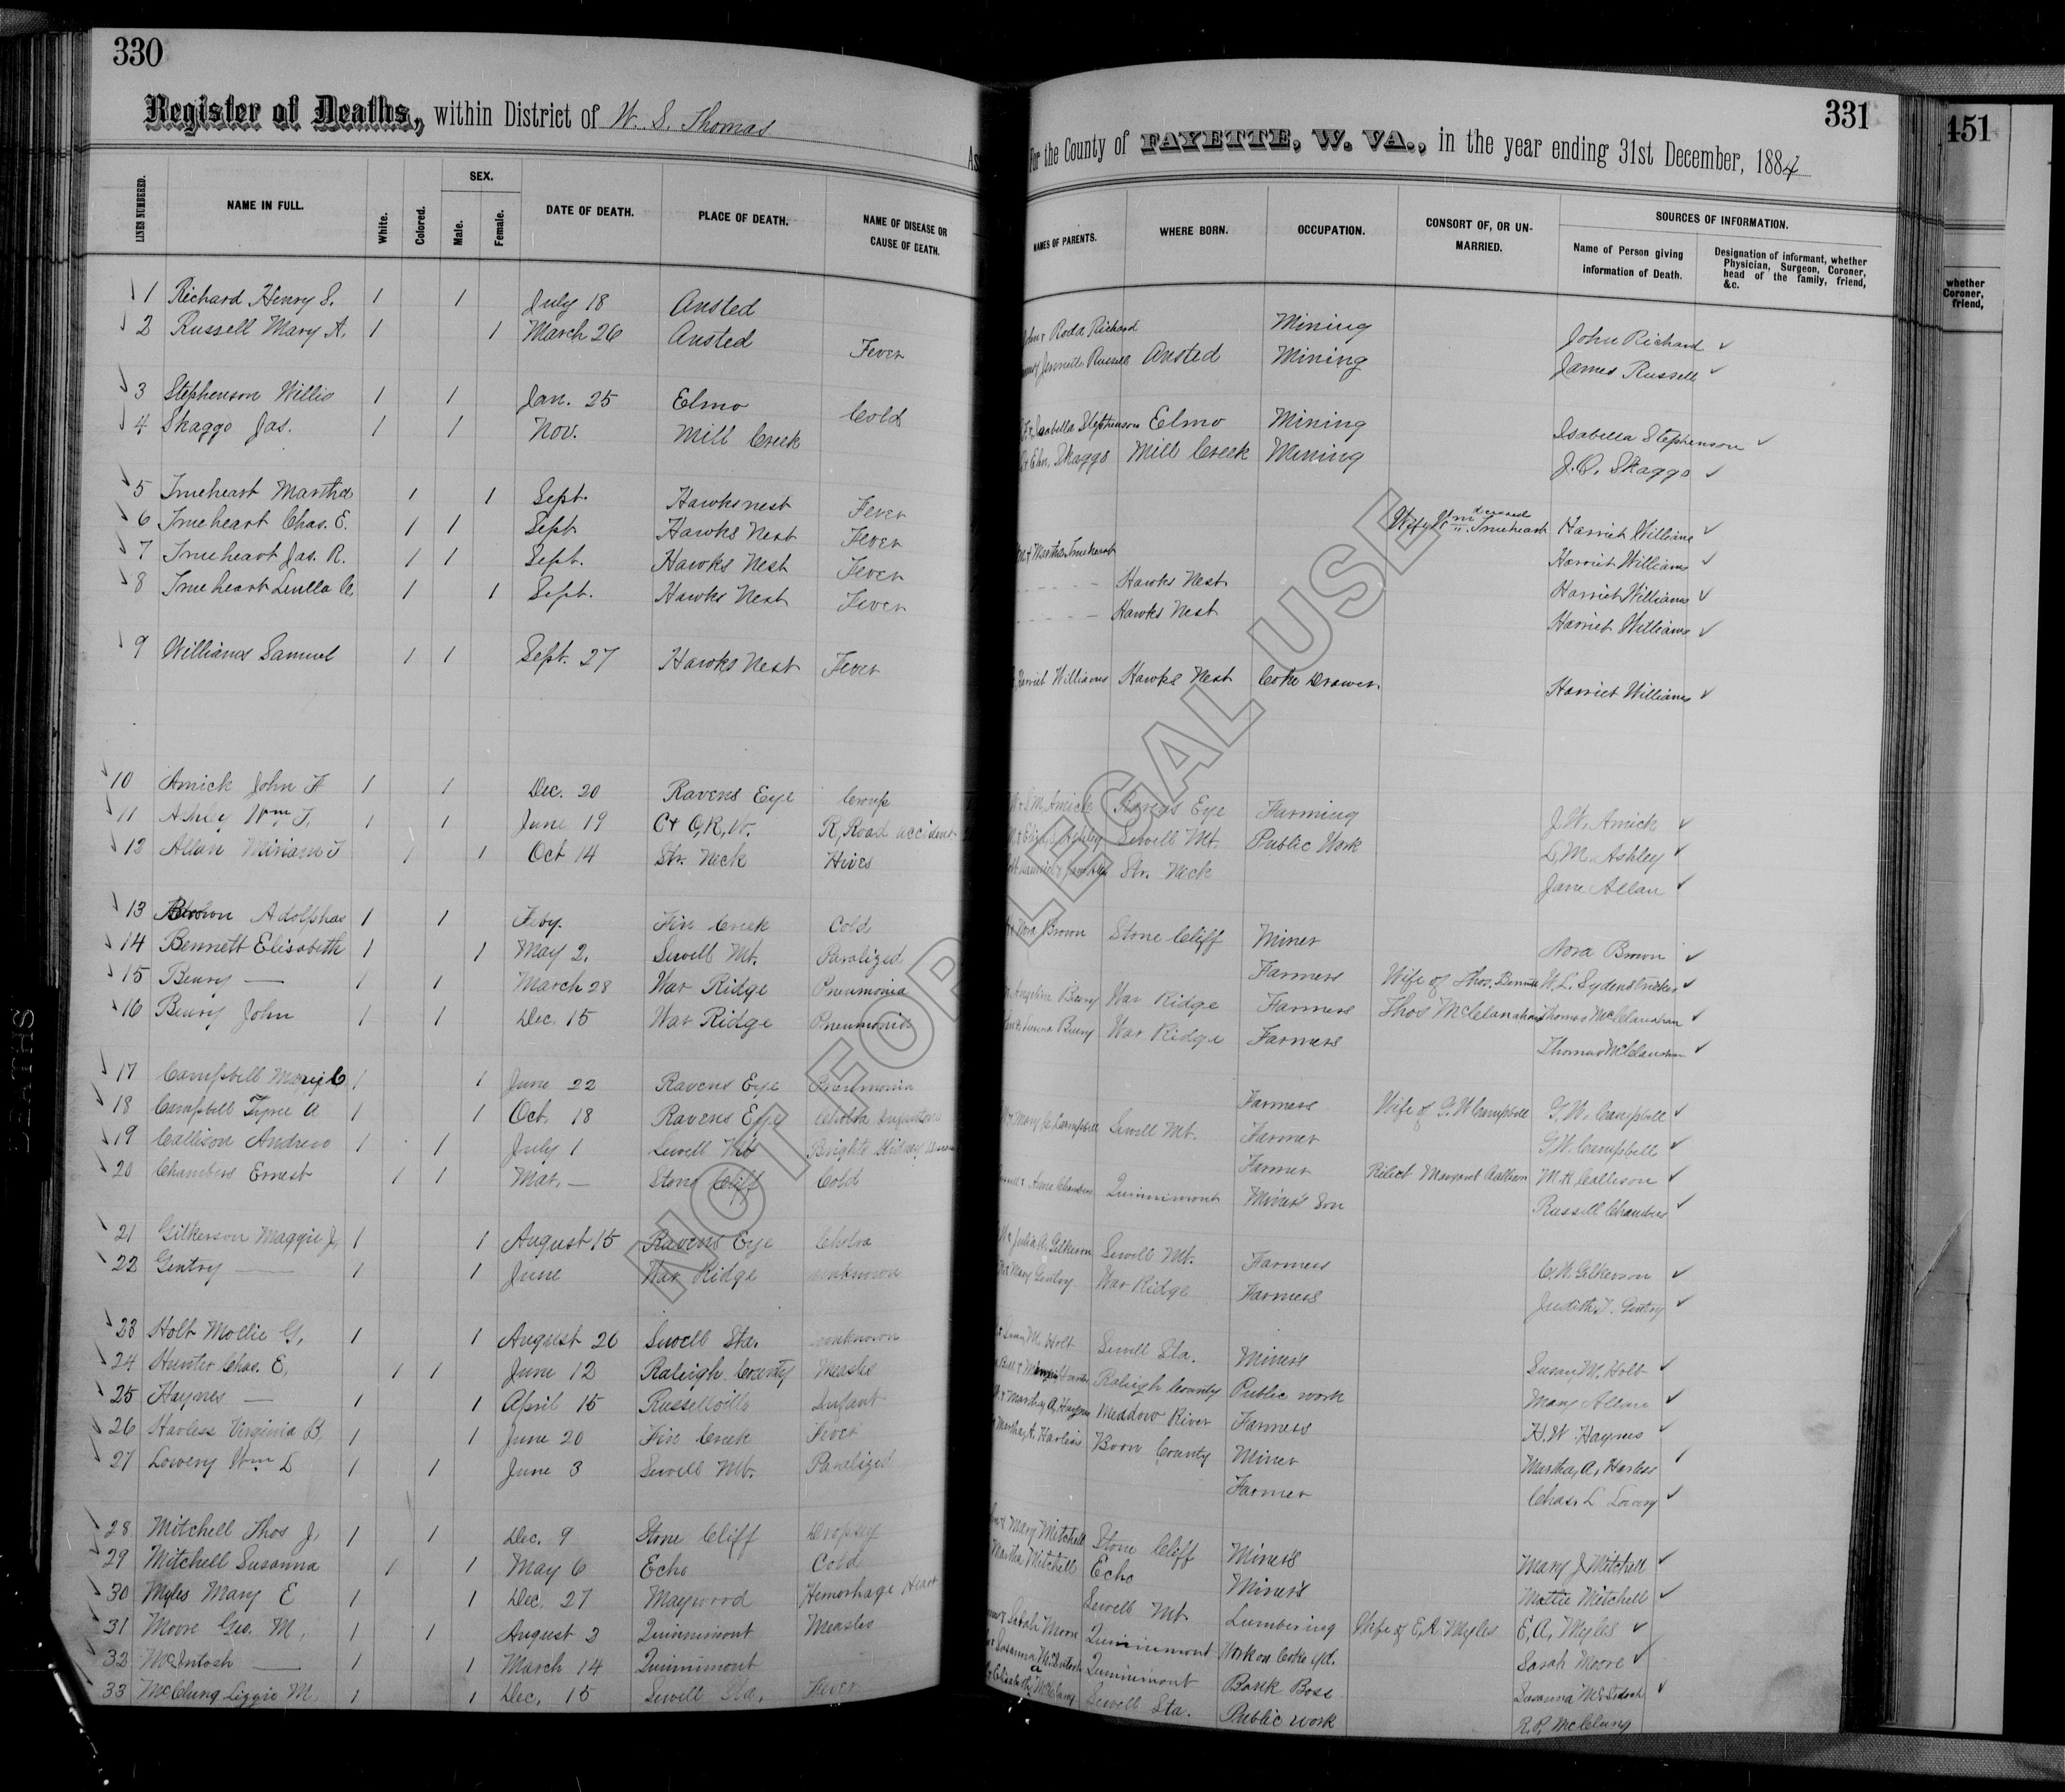 330
Register of Deaths, within District of W. S. Thomas
LINES NUMBERED. NAME IN FULL. White. Colored. SEX. Male. Female. DATE OF DEATH. PLACE OF DEATH. NAME OF DISEASE OR CAUSE OF DEATH.
1 Richard Henry S. 1 1 July 18 Ansted
2 Russell Mary A. 1 1 March 26 Ansted Fever
3 Stephenson Willis 1 1 Jan. 25 Elmo Cold
4 Skaggs Jas. 1 1 Nov. Mill Creek
5 Trueheart Martha 1 1 Sept. Hawksnest Fever
6 Trueheart Chas. E. 1 1 Sept Hawks Nest Fever
7 Trueheart Jas. R. 1 1 Sept. Hawks Nest Fever
8 Trueheart Luella C. 1 1 Sept. Hawks Nest Fever
9 Williams Samuel 1 1 Sept. 27 Hawks Nest Fever
10 Amick John F 1 1 Dec. 20 Ravens Eye Croup
11 Ashley Wm J. 1 1 June 19 C+O,R,W. R, Road accident
12 Allan Miriam J 1 1 Oct 14 Str. Neck Hives
13 Brown Adolphas 1 1 Feby. Fire Creek Cold
14 Bennett Elisabeth 1 1 May 2. Sewell Mt. Paralized
15 Beury — 1 1 March 28 War Ridge Pneumonia
16 Beury John 1 1 Dec. 15 War Ridge Pneumonia
17 Campbell Mary C 1 1 June 22 Ravens Eye Pneumonia
18 Campbell Tyree A 1 1 Oct. 18 Ravens Eye Cholra
19 Callison Andrew 1 1 July 1 Sewell Mt Brights Kidney
20 Chambers Ernest 1 1 Mar. — Stone Cliff Cold
21 Gilkerson Maggie J. 1 1 August 15 Ravens Eye Cholra
22 Gentry — 1 1 June War Ridge unknown
23 Holt Mollie G, 1 1 August 26 Sewell Sta. unknown
24 Hunter Chas. E, 1 1 June 12 Raleigh County Measles
25 Haynes — 1 1 April 15 Russellville Infant
26 Harless Virginia B, 1 1 June 20 Fire Creek Fever
27 Lowery Wm L 1 1 June 3 Sewell Mt. Paralized
28 Mitchell Thos J, 1 1 Dec. 9 Stone Cliff Dropsy
29 Mitchell Susanna 1 1 May 6 Echo Cold
30 Myles Mary E 1 1 Dec. 27 Maywood Hemorhage Heart
31 Moore Geo. M, 1 1 August 2 Quinnimont Measles
32 McIntosh — 1 1 March 14 Quinnimont
33 McClung Lizzie M. 1 1 Dec. 15 Sewell Sta. Fever
331
For the County of FAYETTE, W. VA., in the year ending 31st December, 1884
NAMES OF PARENTS. WHERE BORN. OCCUPATION. CONSORT OF, OR UNMARRIED. SOURCES OF INFORMATION.
Name of Person giving information of Death. Designation of informant, whether Physician, Surgeon, Coroner, head of the family, friend, &c.
Roda Richard Mining John Richard
Jennette Russell Ansted Mining James Russell
Isabella Stephenson Elmo Mining Isabella Stephenson
Skaggs Mill Creek Mining J. O. Skaggs
Wife Wm deceased Trueheart Harriet Williams
Martha Trueheart Harriet Williams
Hawks Nest Harriet Williams
Hawks Nest Harriet Williams
Harriet Williams Hawks Nest Coke Drawer. Harriet Williams
M. Amick Ravens Eye Farming J. W. Amick
Ashley Sewell Mt. Public Work L, M. Ashley
Str. Neck Jane Allan
Nora Brown Stone Cliff Miner Nora Brown
Farmers Wife of Thos. Bennett W. L. Sydenstricker
Angeline Beury War Ridge Farmers Thos McClanahan Thomas McClanahan
Beury War Ridge Farmers Thomas McClanahan
Farmers Wife of G. W Campbell G. W. Campbell
Mary C Campbell Sewell Mt. Farmer G. W. Campbell
Farmer Relict Margaret Callison M. H Callison
Anna Chambers Quinnimont Miner's Son Russell Chambers
Julia A. Gilkerson Sewell Mt. Farmers C. W. Gilkerson
Mary Gentry War Ridge Farmers Judith T. Gentry
Susan M. Holt Sewell Sta. Miners Susan, M. Holt
Raleigh County Public work Mary Allan
Martha, A, Haynes Meadow River Farmers H. W Haynes
Martha, A. Harless Boon County Miner Martha, A, Harless
Farmer Chas. L Lowry
Mary Mitchell Stone Cliff Miners Mary J Mitchell
Martha Mitchell Echo Miners Mattie Mitchell
Sewell Mt. Lumbering Wife of E, A. Myles E, A, Myles
Sarah Moore Quinnimont Work on Coke yd. Sarah Moore
Susanna McIntosh Quinnimont Bank Boss Susanna McIntosh
McClung Sewell Sta. Public work R. P. McClung
451
whether
Coroner,
friend,
DEATHS
NOT FOR LEGAL USE